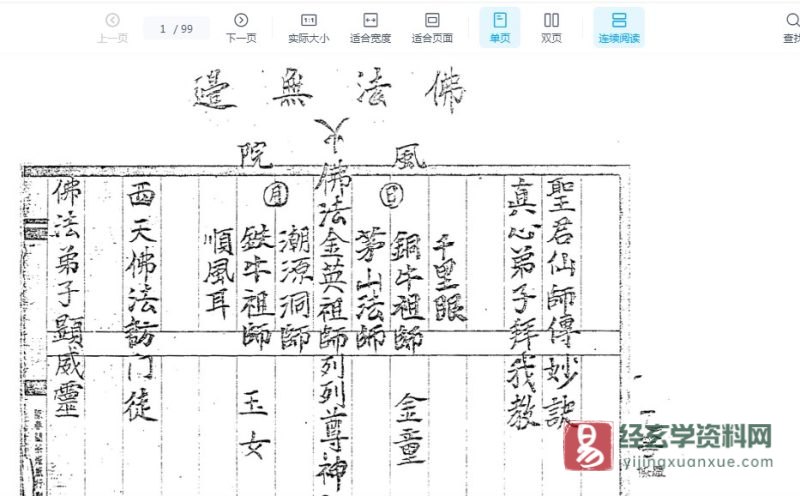 上一页
1 / 99
下一页
实际大小
适合宽度
适合页面
单页
双页
连续阅读
查找
佛法無邊
風院
聖君仙師傳妙訣
真心弟子拜我教
千里眼
銅牛祖師 金童
日
茅山法師
佛法金英祖師列列尊神
潮源洞師
月
鉄牛祖師 玉女
順風耳
西天佛法訪门徒
佛法弟子顕威靈
易
经玄学资料网
yijingxuanxue.com